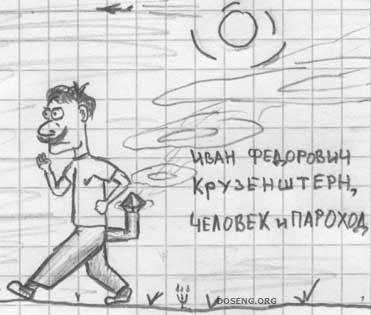 ИВАН ФЕДОРОВИЧ
КРУЗЕНШТЕРН,
ЧЕЛОВЕК и ПАРОХОД
DOSENG.ORG